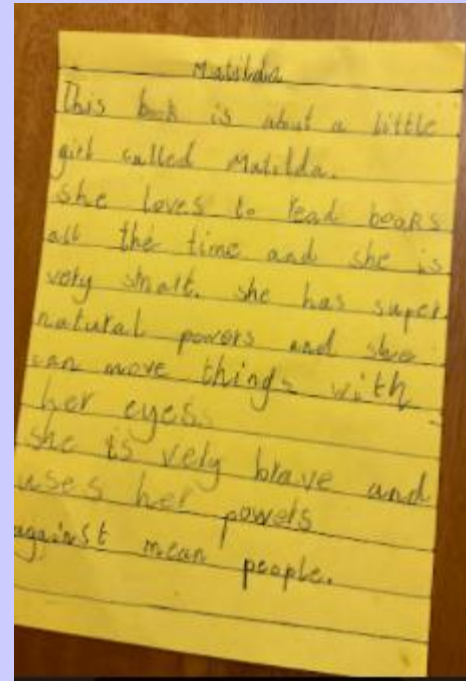 Matilda
This book is about a little
girl called Matilda.
She loves to read books
all the time and she is
very smart. she has super
natural powers and she
can move things with
her eyes.
she is very brave and
uses her powers
against mean people.